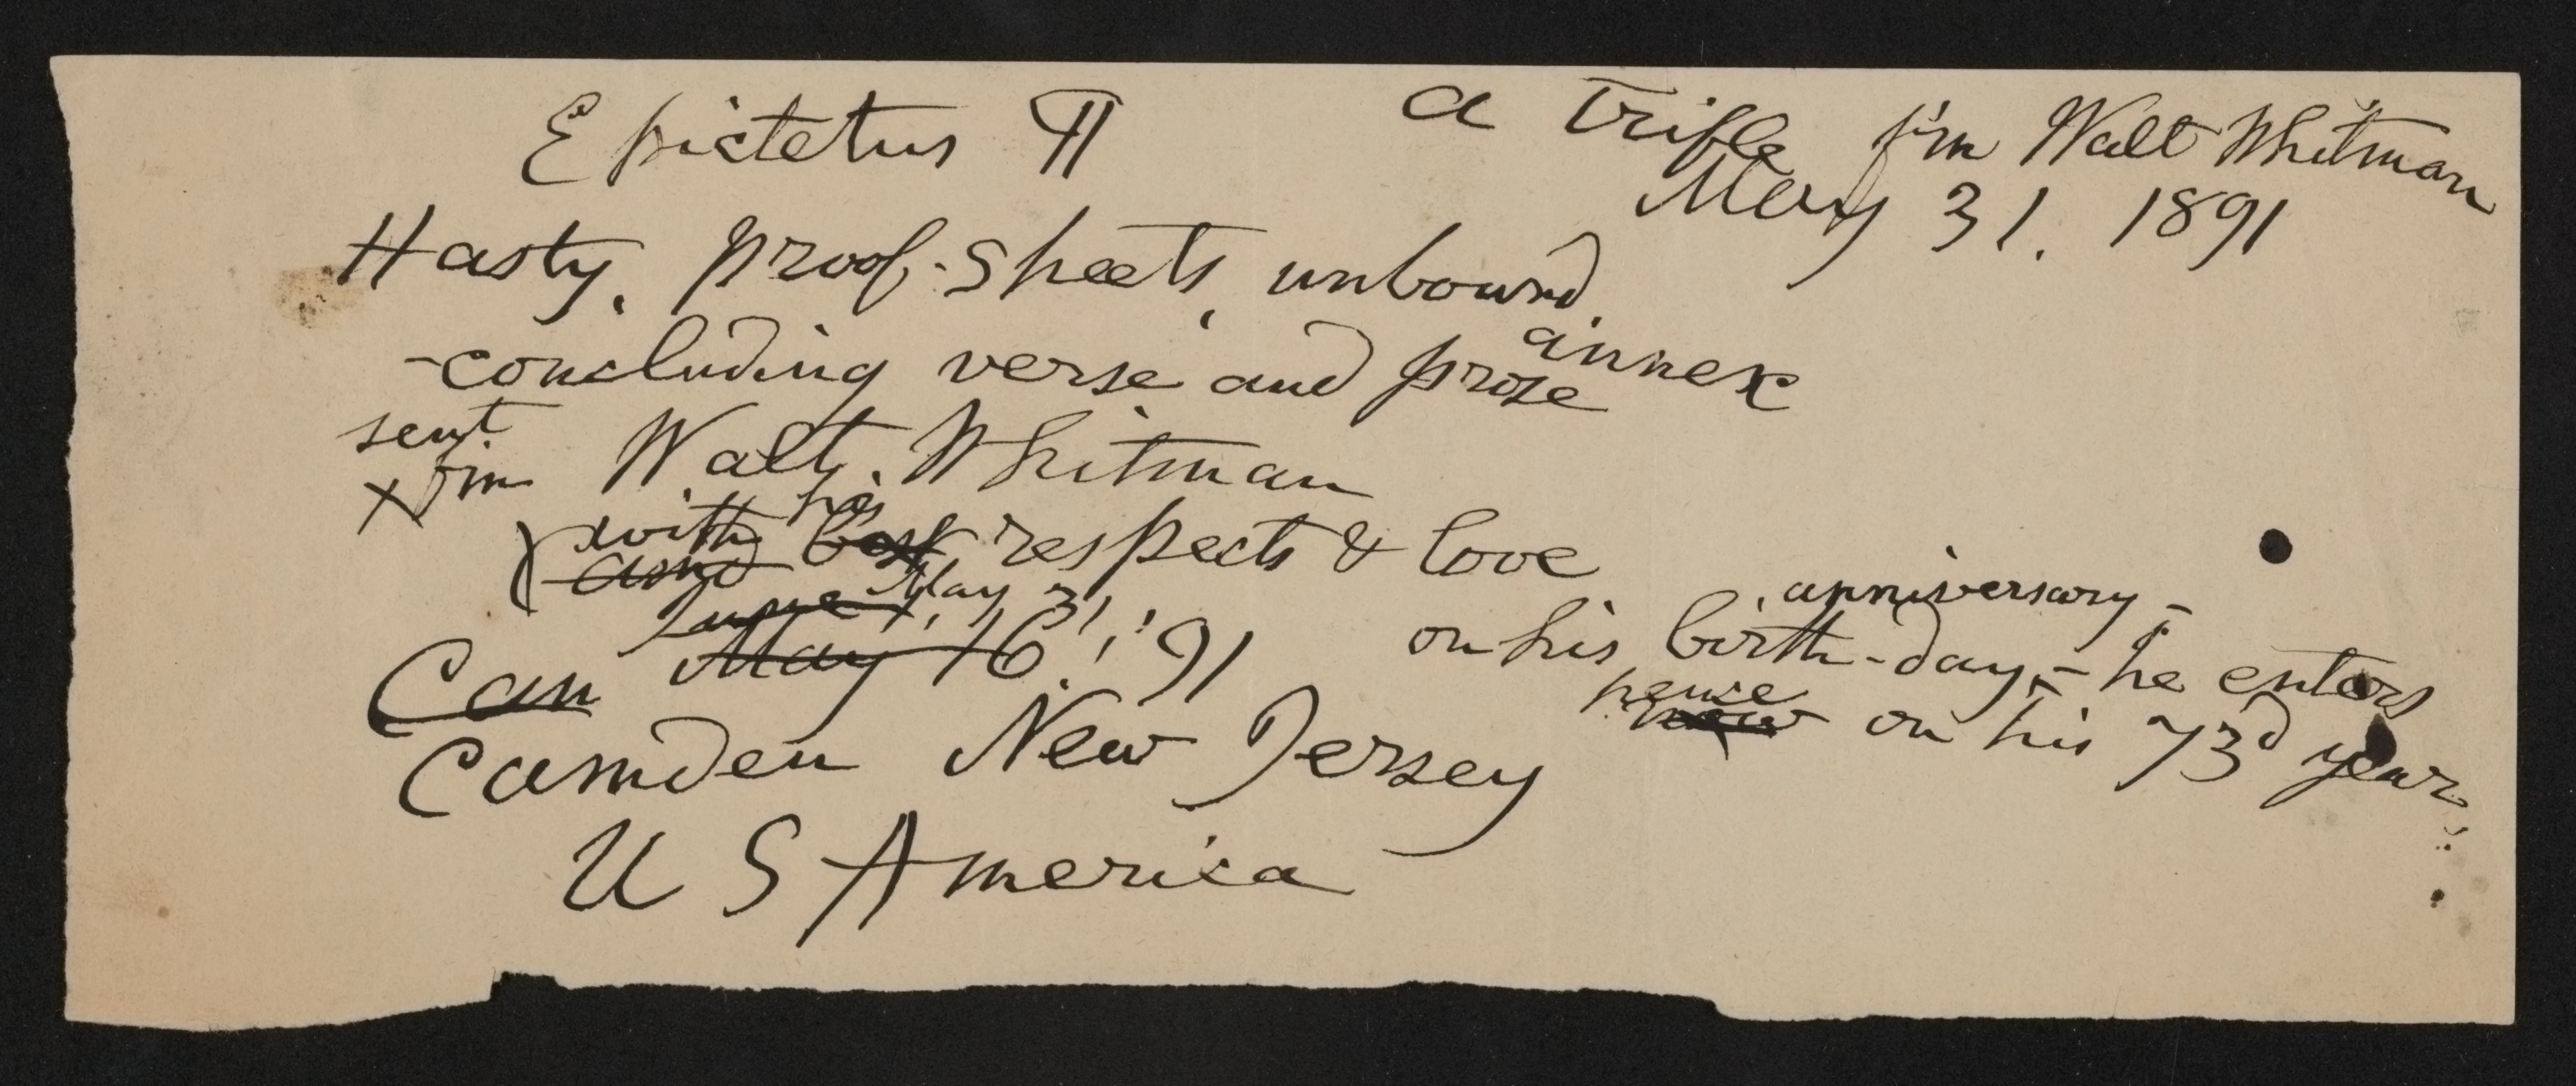 Epictetus ¶
a trifle f'm Walt Whitman
May 31. 1891
Hasty, proof-sheets, unbound,
annex
-concluding verse and prose
sent
f'm Walt Whitman
his
with best respects & love
and
May 31,
May 16, '91
Cam
Camden New Jersey
U S America
anniversary -
on his birth-day, - he enters
hence
now on his 73d year